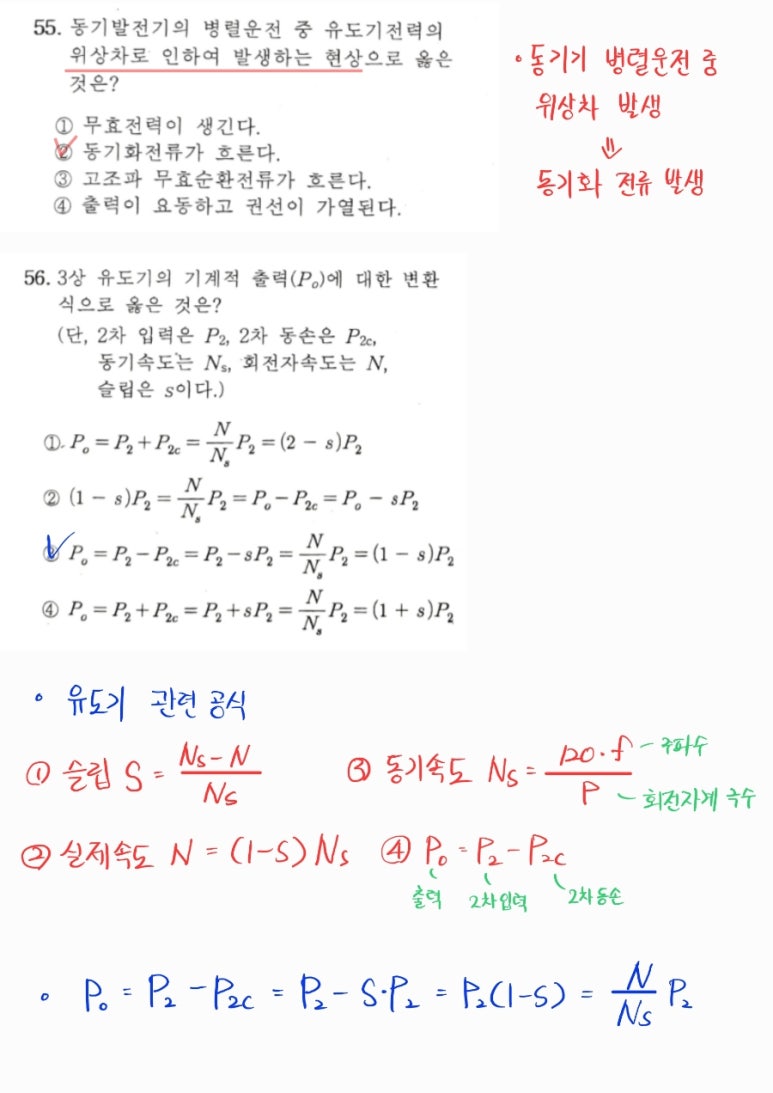 55. 동기발전기의 병렬운전 중 유도기전력의
위상차로 인하여 발생하는 현상으로 옳은
것은?
① 무효전력이 생긴다.
② 동기화전류가 흐른다.
③ 고조파 무효순환전류가 흐른다.
④ 출력이 요동하고 권선이 가열된다.
• 동기기 병렬운전 중
위상차 발생
⇓
동기화 전류 발생
56. 3상 유도기의 기계적 출력(Pₒ)에 대한 변환
식으로 옳은 것은?
(단, 2차 입력은 P₂, 2차 동손은 P₂c,
동기속도는 Nₛ, 회전자속도는 N,
슬립은 s이다.)
① Pₒ = P₂ + P₂c = N/Nₛ P₂ = (2 − s)P₂
② (1 − s)P₂ = N/Nₛ P₂ = Pₒ − P₂c = Pₒ − sP₂
③ Pₒ = P₂ − P₂c = P₂ − sP₂ = N/Nₛ P₂ = (1 − s)P₂
④ Pₒ = P₂ + P₂c = P₂ + sP₂ = N/Nₛ P₂ = (1 + s)P₂
• 유도기 관련 공식
① 슬립 S = Ns-N/Ns
③ 동기속도 Ns = 120·f/P
주파수
회전자계 극수
② 실제속도 N = (1-S) Ns
④ P₀ = P₂ - P₂c
출력 2차입력 2차동손
• P₀ = P₂ - P₂c = P₂ - S·P₂ = P₂(1-S) = N/Ns P₂